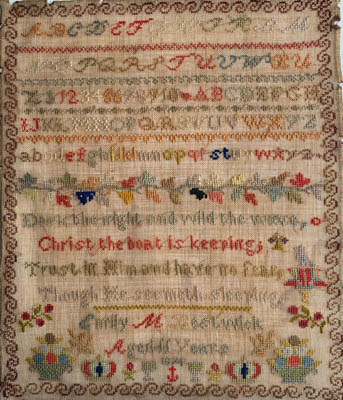 A B C D E F
P Q R S T U V W X Y
Z 1 2 3 4 5 6 7 8 9 10 A B C D E F G H
I J K L M N O P Q R S T U V W X Y Z
a b c d e f g h i j k l m n o p q r s t u v w x y z
Dark the night and wild the wave,
Christ the boat is keeping;
Trust in Him and have no fear,
Though He seemeth sleeping.
Emily M
Aged 11 Years